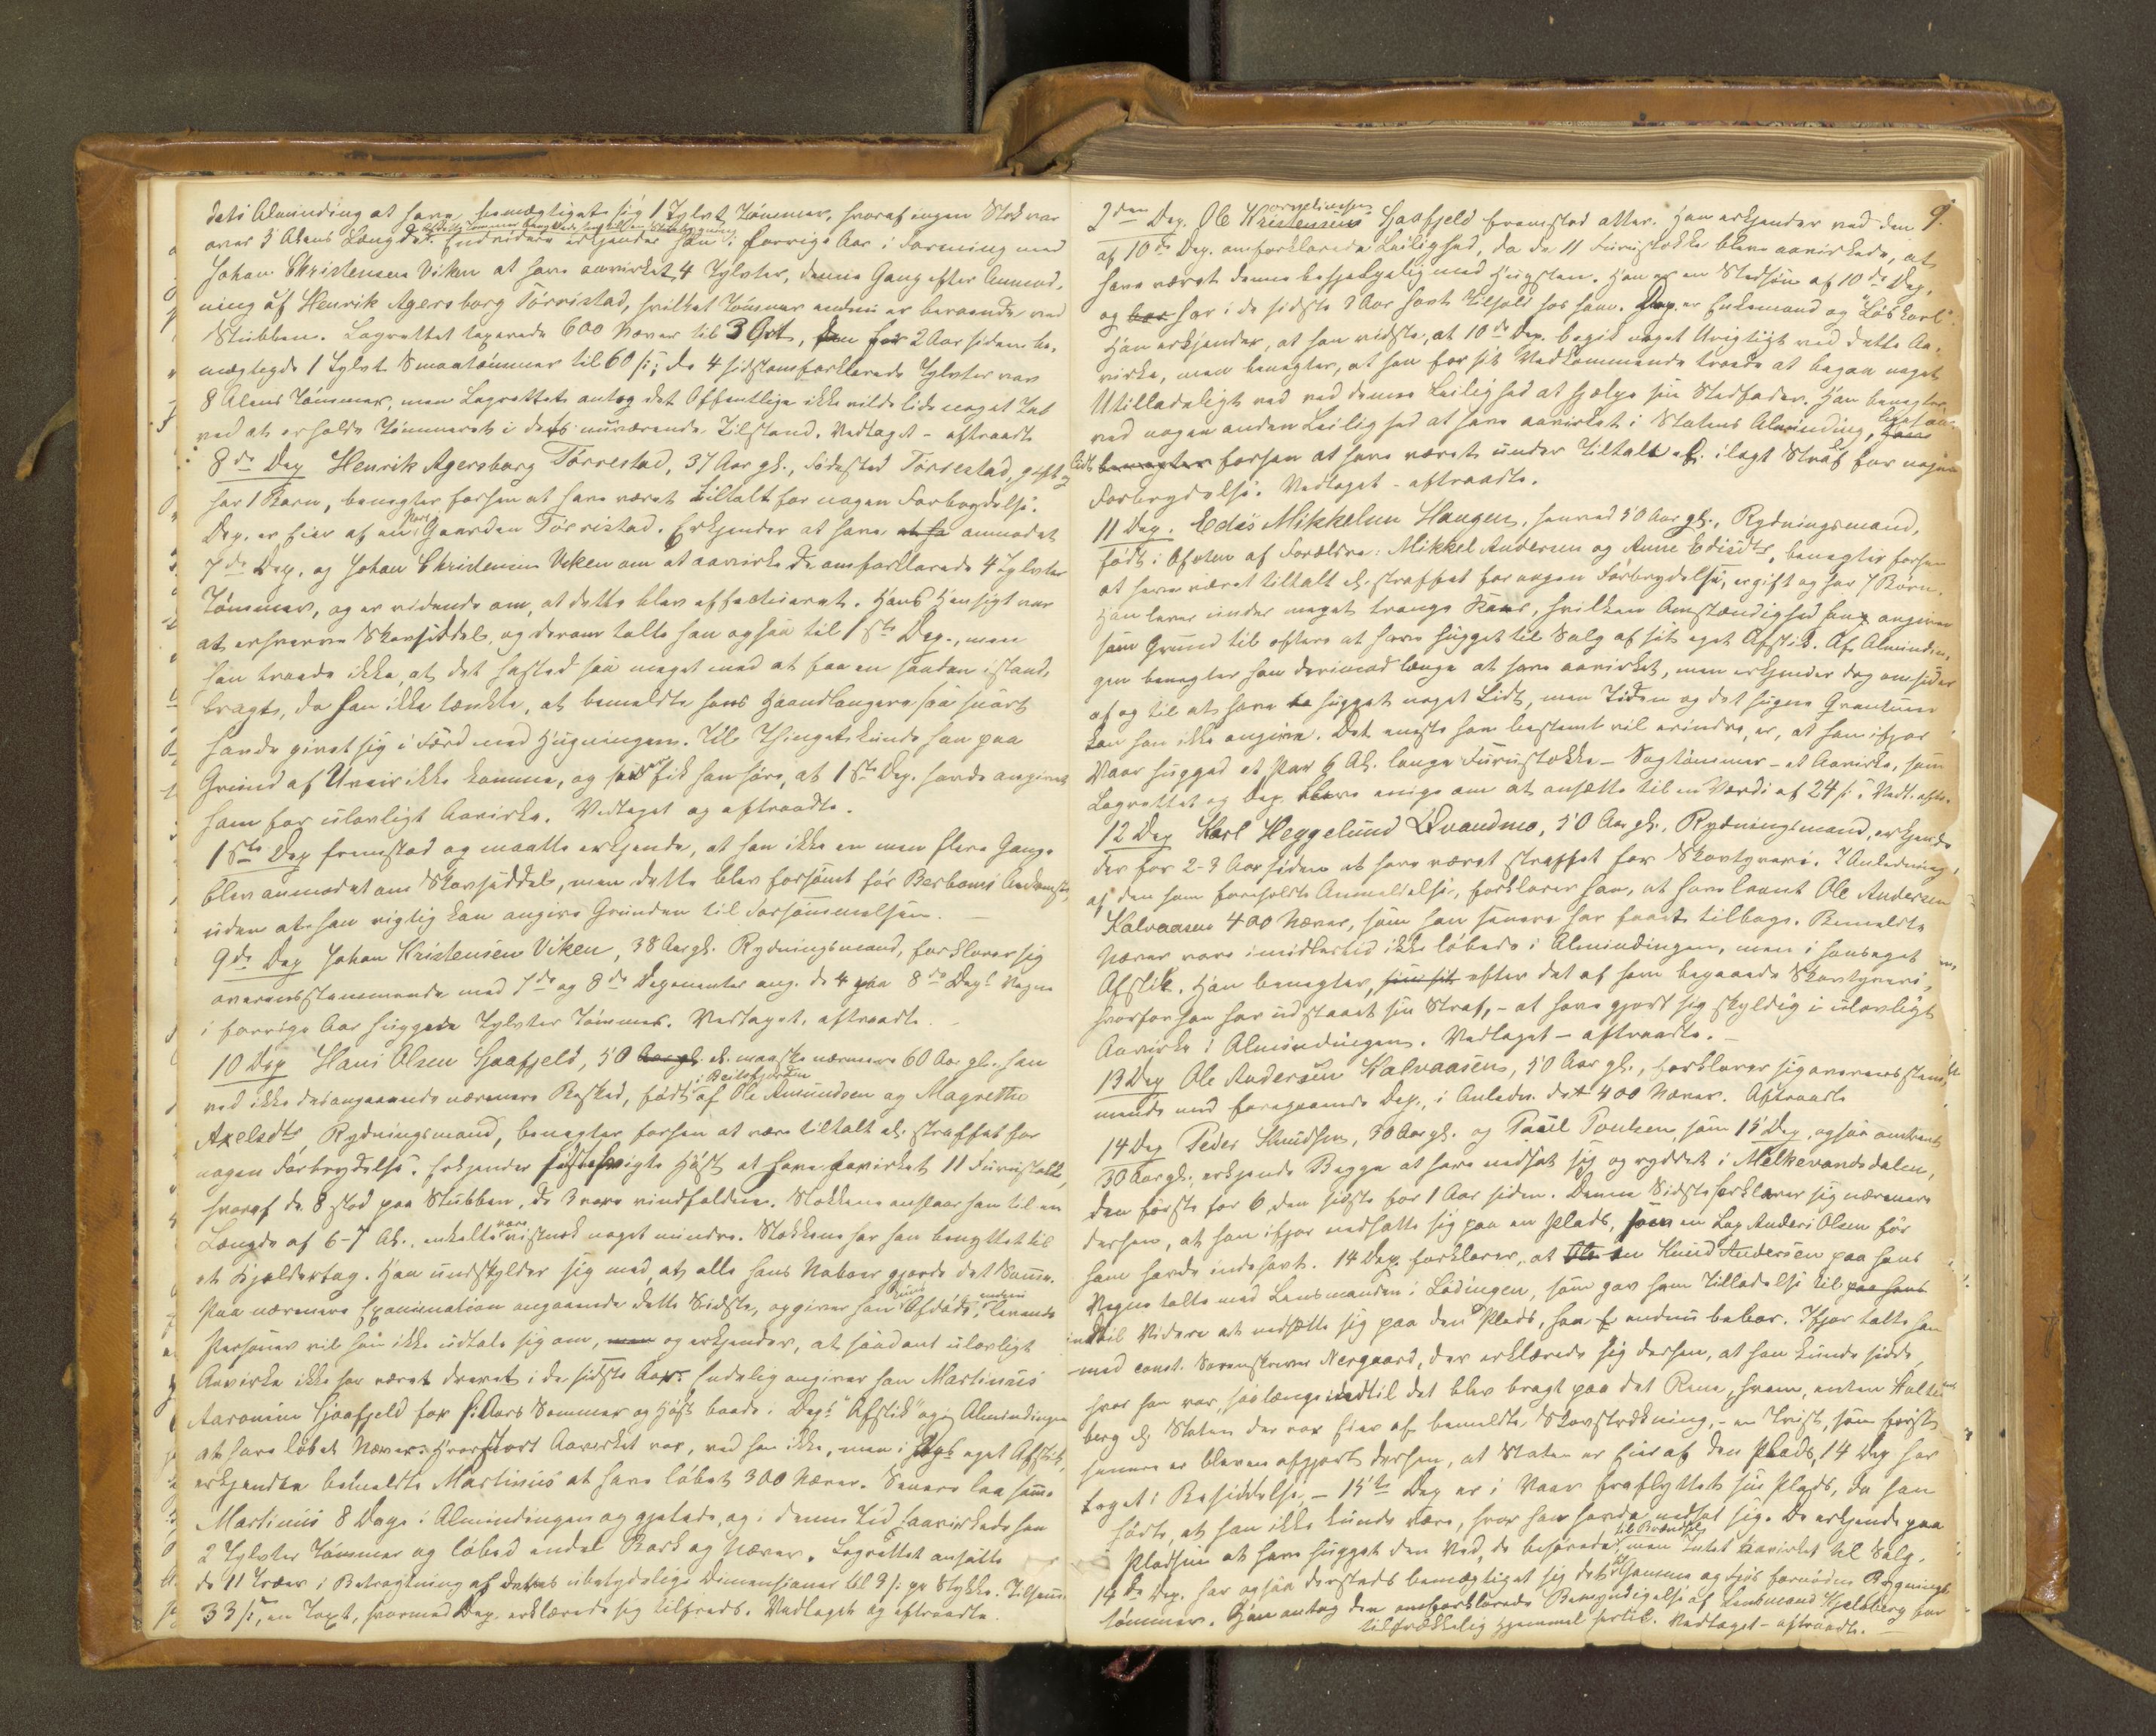 dets Alminding at have bemægtiget sig 1 Tylvt Tømmer, hvoraf ingen Stok var
over 5 Alens Længde. Endvidere erkjender han i forrige Aar i Forening med
Johan Christensen Viken at have avirket 4 Tylvter, denne Gang efter Anmod-
ning af Henrik Agersborg Törristad, hvilket Tømmer endnu er beroende ved
Stubben. Lagrettet taxerede 600 Næver til 3 Ort, for 2 Aar siden be-
mægtigede 1 Tylvt Smaatømmer til 60 ß; de 4 sidstomforklarede Tylvter var
8 Alens Tømmer, men Lagrettet antog det Offentlige ikke vilde lide noget Tab
ved at erholde Tømmeret i dets nuværende Tilstand. Vedtaget - aftraadte
8de Dep Henrik Agersborg Törrestad, 37 Aar gl., Födested Törrestad, gift og
har 1 Barn, benegter forhen at have været tiltalt for nogen Forbrydelse.
Dep. er Eier af en Part i Gaarden Törristad. Erkjender at have anmodet
7de Dep. og Johan Christensen Viken om at aavirke de omforklarede 4 Tylvter
Tømmer, og er vidende om, at dette blev effectueret. Hans Hensigt var
at erhverve Skovseddel, og derom talte han ogsaa til 1ste Dep., men
han troede ikke, at det hastede saa meget med at faa en saadan istand-
bragt, da han ikke tænkte, at bemeldte hans Haandlangere saa snart
havde givet sig i Færd med Hugningen. Til Thinget kunde han paa
Grund af Uveir ikke komme, og fik han høre, at 1ste Dep. havde angivet
ham for ulovligt Aavirke. Vedtaget og aftraadte.
1ste Dep fremstod og maatte erkjende, at han ikke en men flere Gange
blev anmodet om Skovseddel, men dette blev forsømt før Berboms Ankomst,
uden at han rigtig kan angive Grunden til Forsømmelsen.
9de Dep Johan Kristensen Viken, 38 Aar gl. Rydningsmand, forklarer sig
overensstemmende med 7de og 8de Deponenter ang. de 4 paa 8de Deps Vegne
i forrige Aar huggede Tylvter Tømmer. Vedtaget, aftraadte.
10 Dep Hans Olsen Gaafjeld, 50 Aar gl. el. maaske nærmere 60 Aar gl., han
ved ikke desangaaende nærmere Besked, født i Beitsfjorden af Ole Amundsen og Magrethe
Axelsdtr, Rydningsmand, benegter forhen at være tiltalt el. straffet for
nogen Forbrydelse. Erkjender Høst at have aavirket 11 Furustokke,
hvoraf de 8 stod paa Stubben, de 3 vare vindfaldne. Stokkene anslaar han til en
Længde af 6-7 Al., enkelte vare vistnok noget mindre. Stokkene har han benyttet til
et Kjeldertag. Han undskylder sig med, at alle hans Naboer gjorde det Samme.
Paa nærmere Examination angaaende dette Sidste, opgiver han kuns Afdøde, endnu levende
Personer vil han ikke udtale sig om, og erkjender, at saadant ulovligt
Aavirke ikke har været drevet i de sidste Aar. Endelig angiver han Martinus
Aaronsen Gjaafjeld for f. Aars Sommer og Høst baade i Deps "Afstik" og i Almindingen
at have løbet Næver. Hvor stort Aavirket var, ved han ikke, men i Deps eget Afstik,
erkjendte bemeldte Martinus at have løbet 300 Næver. Senere laa samme
Martinus 8 Dage i Almindingen og gjetede, og i denne Tid aavirkede han
2 Tylvter Tømmer og løbed endel Bark og Næver. Lagrettet ansatte
de 11 Træer i Betragtning af deres ubetydelige Dimensioner til 3 ß pr Stykke. Tilsamm.
33 ß, en Taxt, hvormed Dep. erklærede sig tilfreds. Vedtaget og aftraadte.
9.
2den Dep. Ole Kristensens Corneliussen Gaafjeld fremstod atter. Han erkjender ved den
af 10de Dep. omforklarede Leilighed, da de 11 Furustokke bleve aavirkede, at
have været denne behjælpelig med Hugsten. Han er en Stedsøn af 10de Dep,
og har i de sidste 3 Aar havt Tilhold hos ham. Dep. er Enkemand og "Løskarl".
Han erkjender, at han vidste, at 10de Dep. begik noget Urigtigt ved dette Aa-
virke, men benegter, at han for sit Vedkommende troede at begaa noget
Utilladeligt ved ved denne Leilighed at hjælpe sin Stedfader. Han benegter
ved nogen anden Leilighed at have aavirket i Statens Alminding, ligesaa-
lidt benegter forhen at have været under Tiltale el. ilagt Straf for nogen
Forbrydelse. Vedtaget - aftraadte.
11 Dep. Edis Mikkelsen Haugen, henved 50 Aar gl., Rydningsmand,
født i Ofoten af Forældre: Mikkel Andersen og Anne Edisdtr, benegter forhen
at have været tiltalt el. straffet for nogen Forbrydelse, er gift og har 7 Børn.
Han lever under meget trange Kaar, hvilken Omstændighed han angiver
som Grund til oftere at have hugget til Salg af sit eget Afstik. Af Almindin-
gen benegter han derimod længe at have aavirket, men erkjender dog omsider
af og til at have hugget noget Lidt, men Tiden og det hugne Qvantum
kan han ikke angive. Det eneste han bestemt vil erindre, er, at han ifjor
Vaar huggede et Par 6 Al. lange Furustokke - Sagtømmer - et Aavirke, som
Lagrettet og Dep. bleve enige om at ansætte til en Værdi af 24 ß. Vedt. aftr.
12 Dep Karl Heggelund Qvandmo, 50 Aar gl., Rydningsmand, erkjender
for 2-3 Aar siden at have været straffet for Skovtyveri. I Anledning
af den ham foreholdte Anmeldelse, forklarer han, at have laant Ole Andersen
Kalvaasens 400 Næver, som han senere har faaet tilbage. Bemeldte
Næver vare imidlertid ikke løbede i Almindingen, men i hans eget
Afstik. Han benegter, efter det af ham begaaede Skovtyveri,
hvorfor han har udstaaet sin Straf, - at have gjort sig skyldig i ulovligt
Aavirke i Almindingen. Vedtaget - aftraadte.
13 Dep Ole Andersen Kalvaasens, 50 Aar gl., forklarer sig overensstem-
mende med foregaaende Dep., i Anledn. det 400 Næver. Aftraadte
14 Dep Peder Knudsen, 30 Aar gl. og Poul Poulsen, som 15 Dep, ogsaa omtrent
30 Aar gl. erkjende Begge at have nedsat sig og ryddet i Melkevandsdalen,
den første for 6, den sidste for 1 Aar siden. Denne Sidste forklarer sig nærmere
derhen, at han ifjor nedsatte sig paa en Plads, som en Lap Anders Olsen før
ham havde indehavt. 14 Dep. forklarer, at en Knud Andersen paa hans
Vegne talte med Lensmanden i Lødingen, som gav ham Tilladelse til paa hans
indtil Videre at nedsætte sig paa den Plads, han endnu bebor. Ifjor talte han
med const. Sorenskriver Nergaard, der erklærede sig derhen, at han kunde sidde,
hvor han var, saalænge indtil det blev bragt paa det Rene, hvem, enten
berg el. Staten der var Eier af bemeldte Skovstrækning, - en Tvist, som først
senere er bleven afgjort derhen, at Staten er Eier af den Plads, 14 Dep har
taget i Besiddelse. - 15te Dep er i Vaar fraflyttet sin Plads, da han
hørte, at han ikke kunde være, hvor han havde nedsat sig. De erkjende paa
Pladsen at have hugget den Ved, de behøvede til Brændsel, men Intet aavirket til Salg.
14de Dep. har ogsaa dersteds bemægtiget sig det til Gamme og Fjøs fornødne Bygnings-
tømmer. Han antog den omforklarede Bemyndigelse af Lensmand Kjelsberg for
tilstrækkelig Hjemmel hertil. Vedtaget - aftraadte.